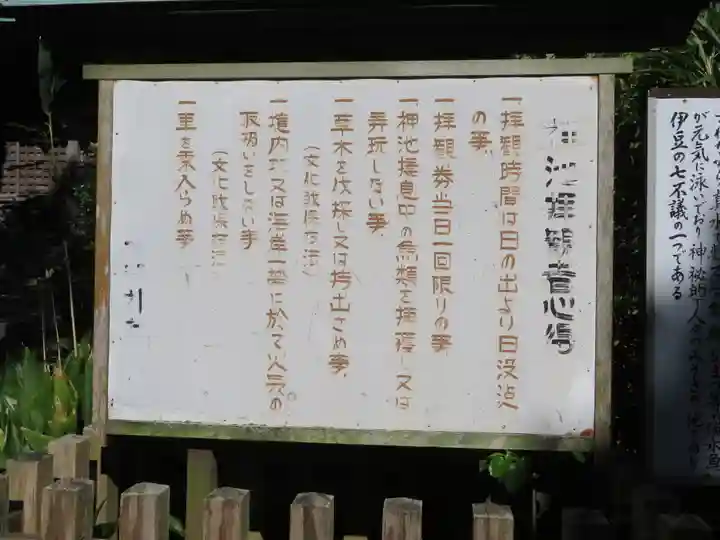 神池拝観者心得
一拝観時間は日の出より日没迄
の事、
一拝観券当日一回限りの事
一神池棲息中の魚類を捕獲し又は
弄玩しない事、
一草木を伐採し又は持出さぬ事、
(文化財保存法)
一境内又は海岸一帯に於て火気の
取扱いをしない事
(文化財保存法)
一車を乗入らぬ事
が元気に泳いでおり神秘的
伊豆の七不議の一つである